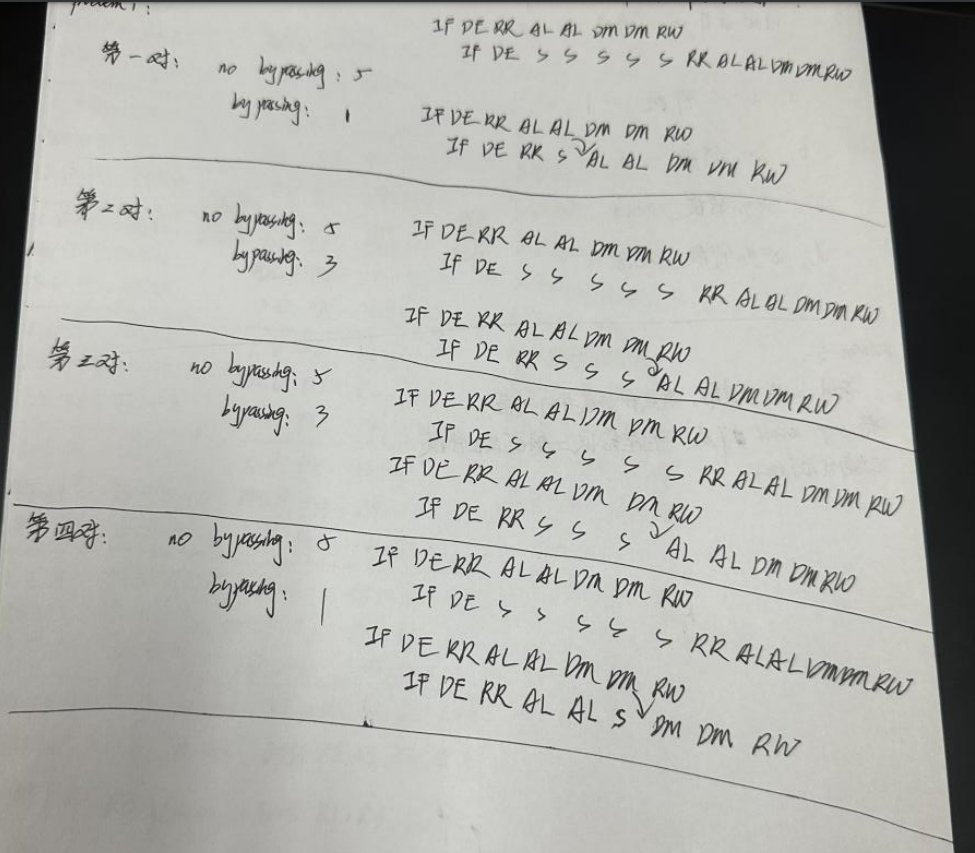 IF DE RR AL AL DM DM RW
第一对: no bypassing: 5 IF DE S S S S S RR AL AL DM DM RW
bypassing: 1 IF DE RR AL AL DM DM RW
IF DE RR S AL AL DM DM RW
第二对: no bypassing: 5 IF DE RR AL AL DM DM RW
bypassing: 3 IF DE S S S S S RR AL AL DM DM RW
IF DE RR AL AL DM DM RW
IF DE RR S S S AL AL DM DM RW
第三对: no bypassing: 5 IF DE RR AL AL DM DM RW
bypassing: 3 IF DE S S S S S RR AL AL DM DM RW
IF DE RR AL AL DM DM RW
IF DE RR S S S AL AL DM DM RW
第四对: no bypassing: 5 IF DE RR AL AL DM DM RW
bypassing: 1 IF DE S S S S S RR AL AL DM DM RW
IF DE RR AL AL DM DM RW
IF DE RR AL AL S DM DM RW